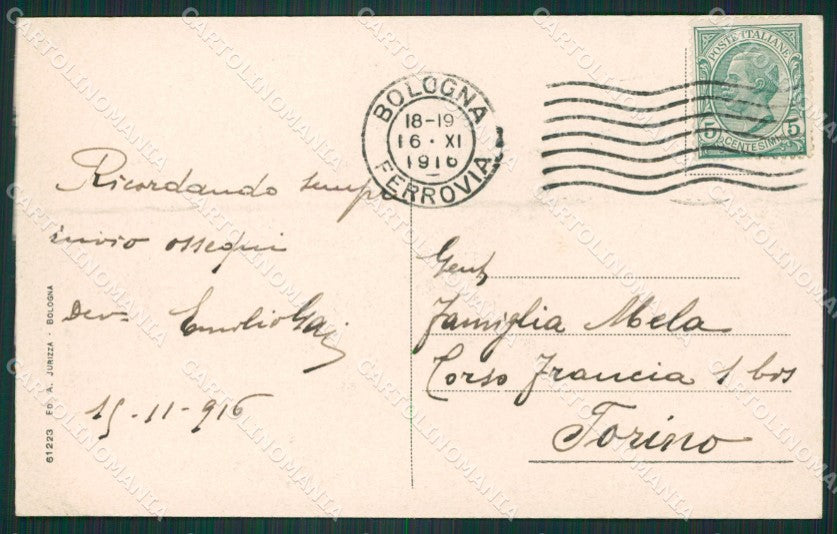 POSTE ITALIANE
5 5
CENTESIMI
BOLOGNA
18-19
16 · XI
1916
FERROVIA
Ricordando sempre
invio ossequi
Dev.
Emilio
15-11-916
Gent.
Famiglia Mela
Corso Francia 1 bis
Torino
61223 ED. A. JURIZZA - BOLOGNA
CARTOLINOMANIA